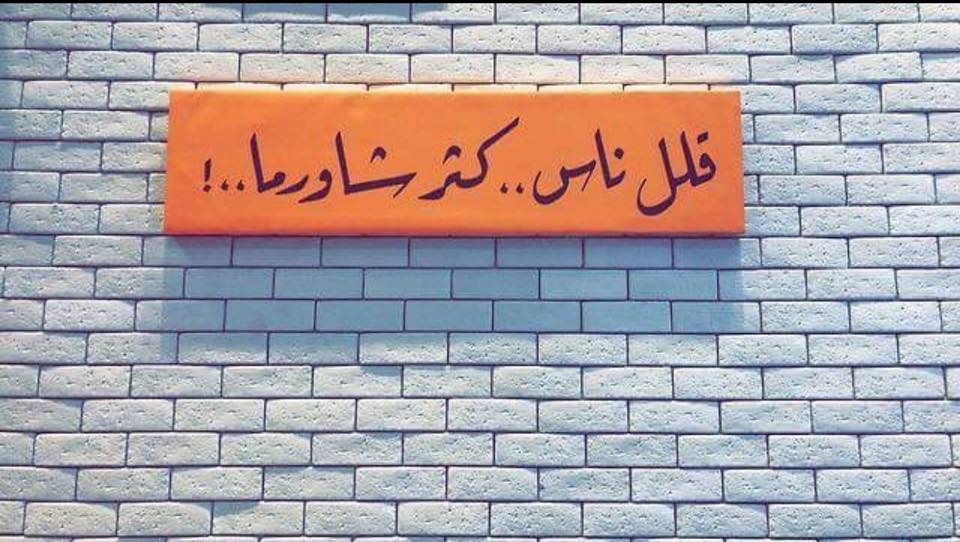 قلل ناس..كثر شاورما..!